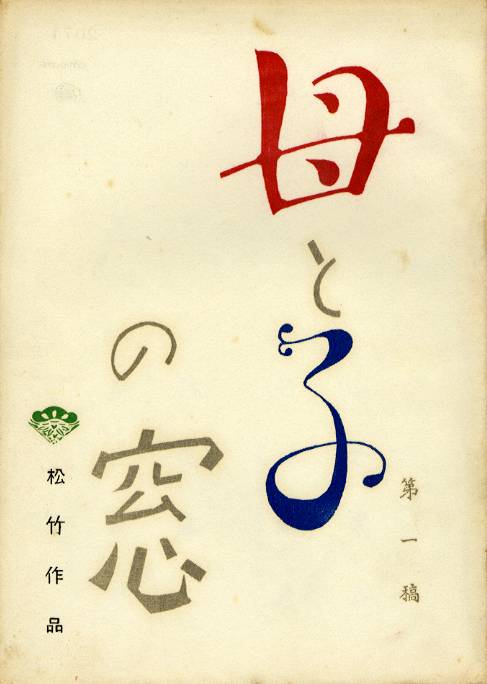 母と子
の窓
第一稿
松竹作品